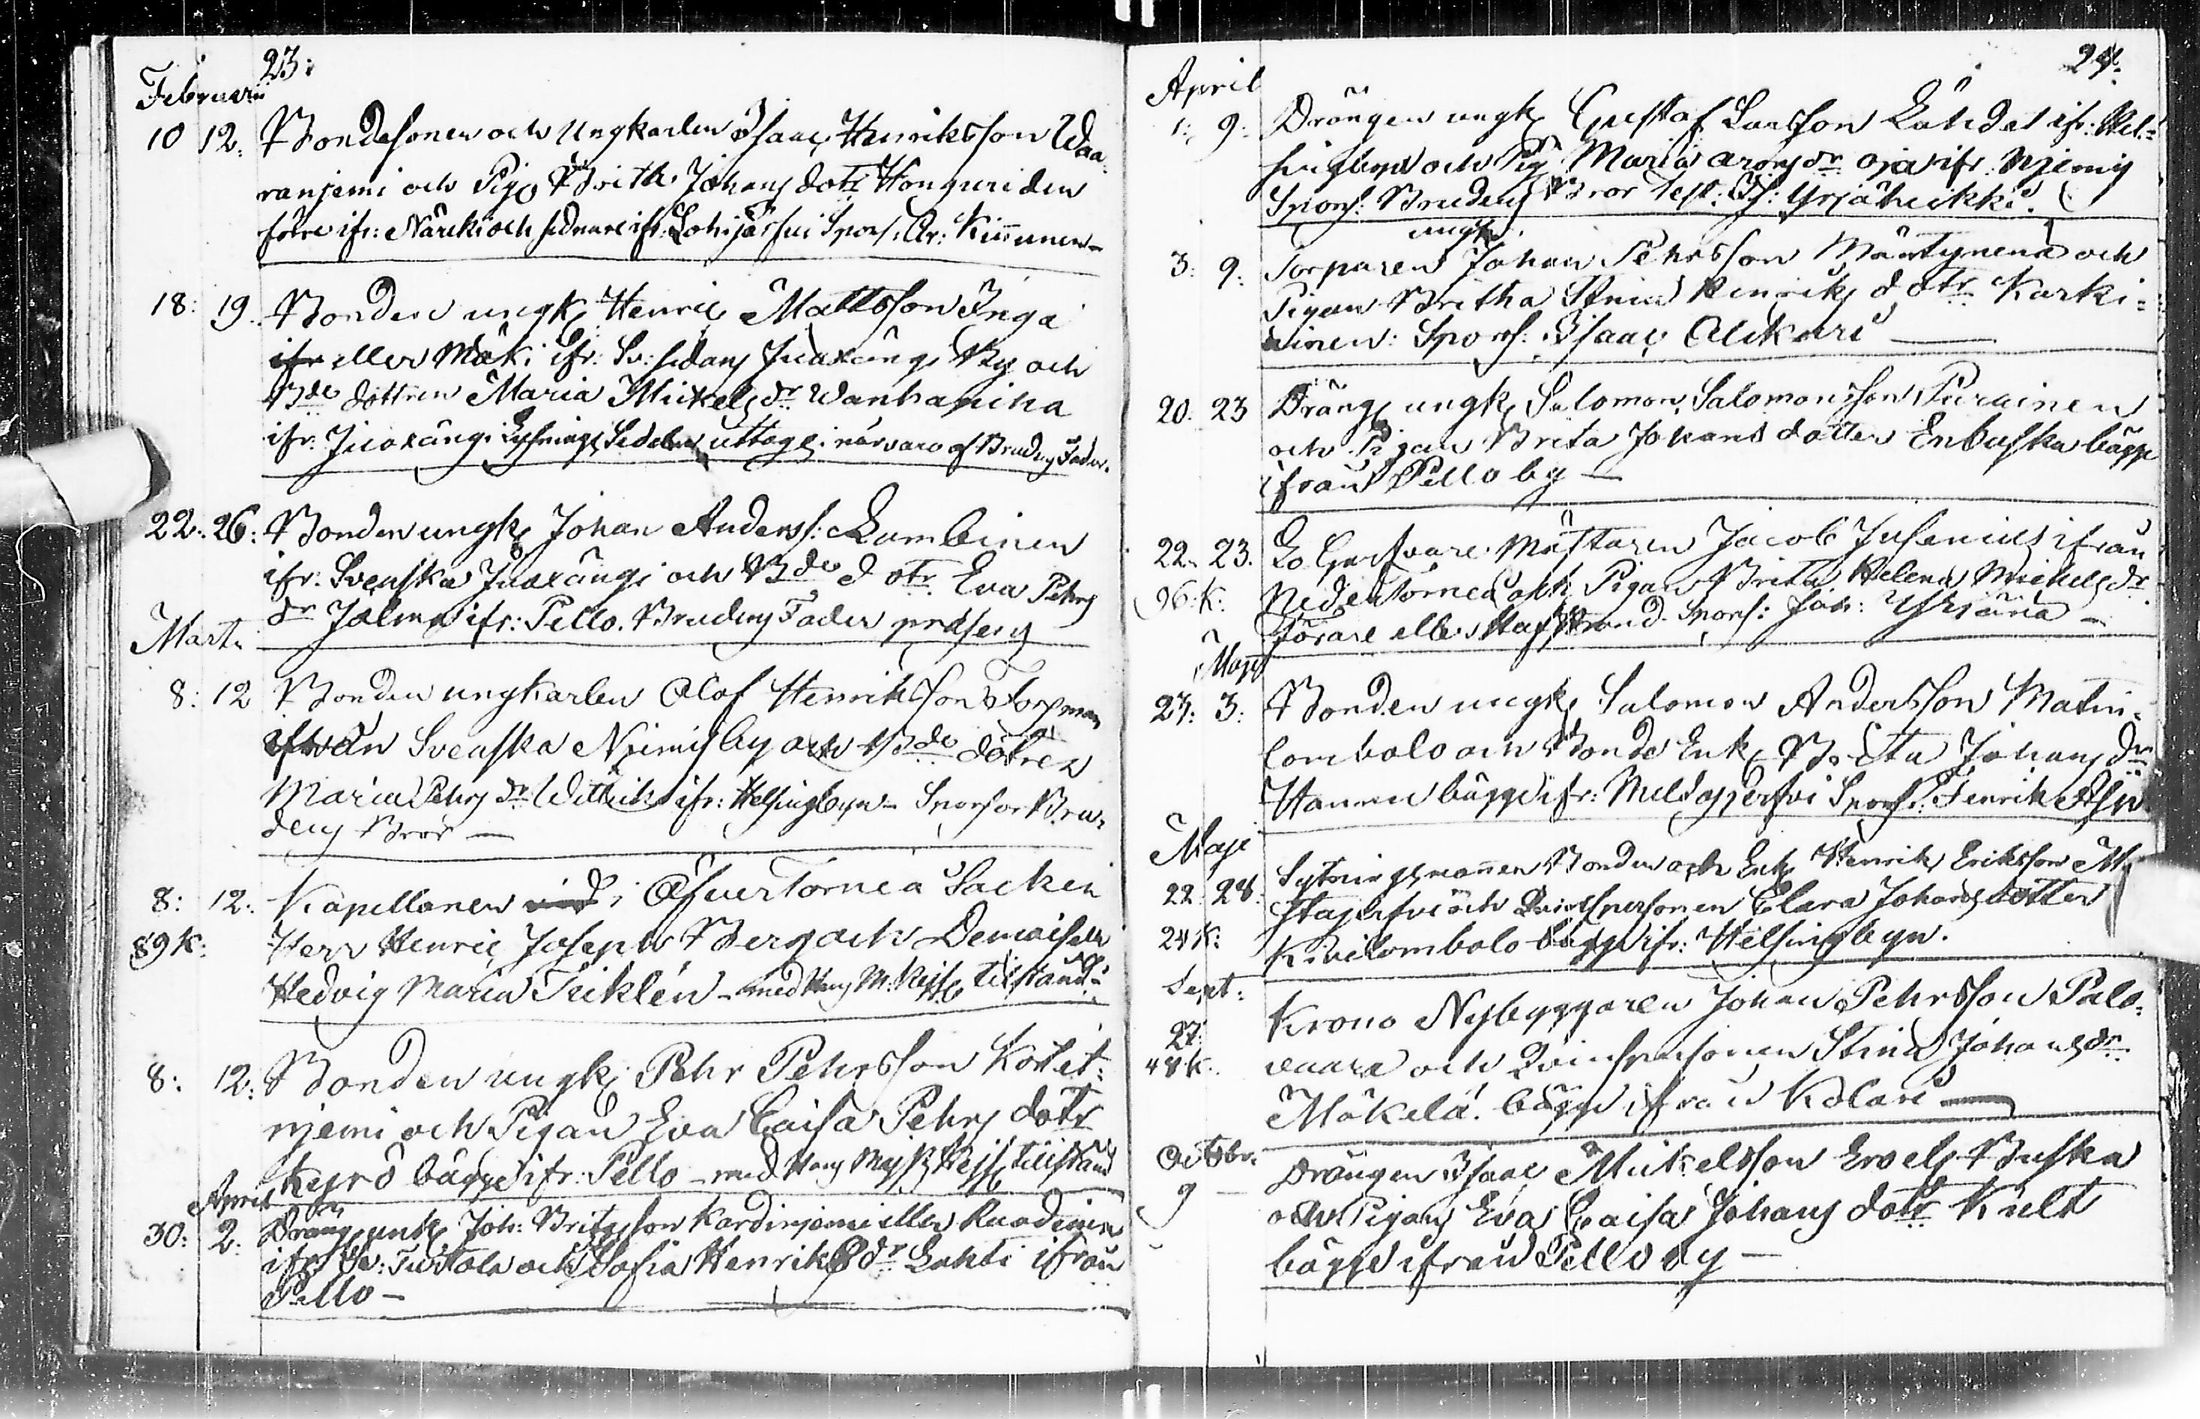 23:
Februarii
10 12. Bondesonen och Ungkarlen Isaac Henriksson Waa-
ranjemi och Pig. Brita Johans dotr Honguri den
förre ifr: Närki och sednare ifr: Lohijärfui Spons. Ar: Kinnunen -
18: 19. Bonden ungk. Henric Mattsson Inga
eller Mäki ifr: Sv: sidans Juoxängi By och
Bde dottren Maria Mickels dr Wanhapiha
ifr: Juoxängi Lysnings Sedelen uttogs i närvaro af Brudens Fader.
22: 26: Bonden ungk. Johan Anderss: Lambinen
ifr: Svenska Juoxängi och Bde dotr. Eva Pehrs
dr Jolma ifr: Pello. Brudens Fader præsens
Marti
8: 12 Bonden ungkarlen Olof Henriksson Torpman
ifrån Svenska Njemis by och Bde dotren
Maria Pehrs dr Wittick ifr: Helsingbyn - Sponsor Bru-
dens Bror -
8: 12: Kapellanen i Öfver Torneå Socken
89 k: Herr Henric Joseph Berg och Demoiselle
Hedvig Maria Ticklén - med Hans M: Kejss tilstånd -
8: 12: Bonden ungk. Pehr Pehrsson Kortet-
njemi och Pigan Eva Caisa Pehrs dotr
Keyrö bägge ifr: Pello - med Hans Maj:ts Kejss tillstånd
April
30: 2: Dräng. enkl. Joh: Britasson Kardinjemi eller Ruodinen
ifr: Sv: Turtola och Sofia Henriks dr Lahti ifrån
Pello -
24.
April
1: 9: Drängen ungk. Gustaf Larsson Lahdet ifr: Hel-
singbyn och Pig. Maria Arons dr Oja ifr: Njemis
Spons: Brudens Bror Test: Is: Yrjänheikki.
ungk.
3: 9: Torparen Johan Pehrsson Mäntynenä och
Pigan Britha Stina Henriks dotr. Karki-
ainen: Spons: Isaac Alikari
20: 23 Dräng. ungk. Salomon Salomonsson Purainen
och Pigan Brita Johans dotter Enbuska bägge
ifrån Pello by -
22: 23. Lo Garfvare Mästaren Jacob Jusenius ifrån
96 k: Neder Torneå och Pigan Brita Helena Mickels dr
Förare eller Stafstrand. Spons: Joh: Yrjänä -
Maji
23: 3: Bonden ungk. Salomon Andersson Matin-
lombolo och Bonde Enk. Brita Johans dr
Hannu bägge ifr: Meldosjerfvi Spons: Henrik Asp
Maji
22 28. Sytningsmannen Bonden och Enkl. Henrik Eriksson
24 k: och Qvinspersonen Clara Johans dotter
Kivilombolo bägge ifr: Helsingbyn.
Sept:
27: Krono Nybyggaren Johan Pehrsson Palo-
48 k: vaara och Qvinspersonen Stina Johans dr.
Mäkelä. bägge ifrån Kolari
Octobr.
9 - Drängen Isaac Mickelsson Ervels Buska
och Pigan Eva Caisa Johans dotr Kult
bägge ifrån Pello by -